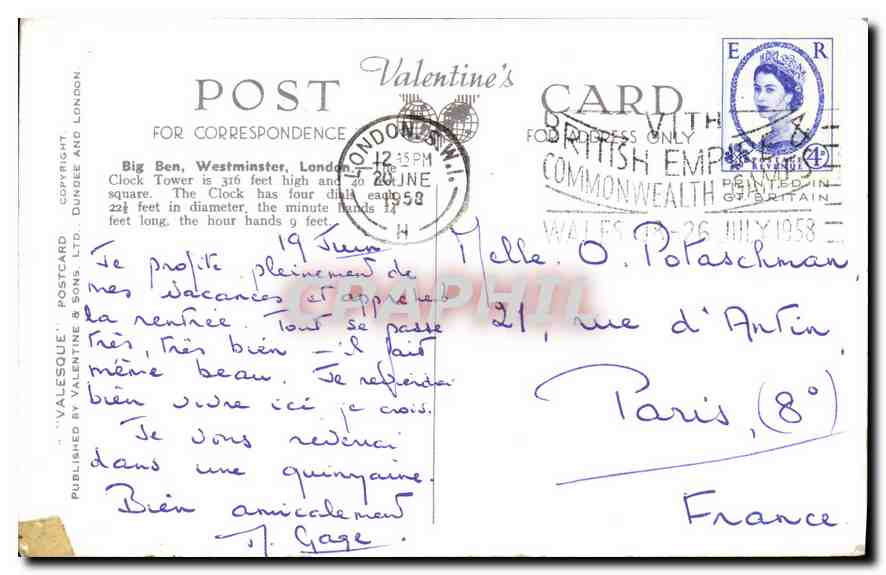 POST Valentine's CARD
FOR CORRESPONDENCE FOR ADDRESS ONLY
Big Ben, Westminster, London. The
Clock Tower is 316 feet high and 40 feet
square. The Clock has four dials each
22½ feet in diameter, the minute hands 14
feet long, the hour hands 9 feet.
"VALESQUE" POSTCARD COPYRIGHT.
PUBLISHED BY VALENTINE & SONS, LTD., DUNDEE AND LONDON.
LONDON. S.W.1.
12.15PM
20 JNE
1958
H
E R
POSTAGE REVENUE 4D
PRINTED IN
GT BRITAIN
BRITISH EMPIRE &
COMMONWEALTH GAMES
WALES 18-26 JULY 1958
19 Juin
Je profite pleinement de
mes vacances et
la rentrée. Tout se passe
très, très bien - il fait
même beau. Je
bien vivre ici je crois.
Je vous reverrai
dans une quinzaine.
Bien amicalement
M. Gage.
Melle. O. Potaschman
21, rue d'Antin
Paris (8°)
France
CPAPHIL